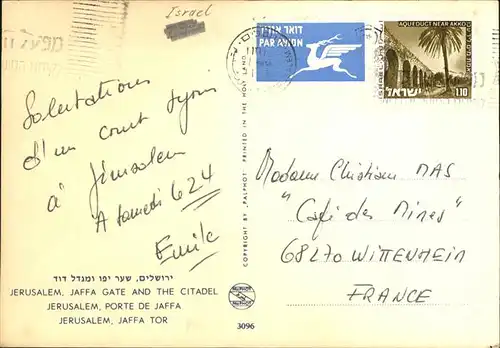 Israel
דואר אויר
PAR AVION
AQUEDUCT NEAR AKKO
ISRAEL
ישראל
1.10
Salutations
d'un court séjour
à Jérusalem
A samedi 624
Emile
Madame Christian MAS
"Café des Mines"
68270 WITTENHEIM
FRANCE
COPYRIGHT BY PALPHOT PRINTED IN THE HOLY LAND
ירושלים, שער יפו ומגדל דוד
JERUSALEM, JAFFA GATE AND THE CITADEL
JERUSALEM, PORTE DE JAFFA
JERUSALEM, JAFFA TOR
3096